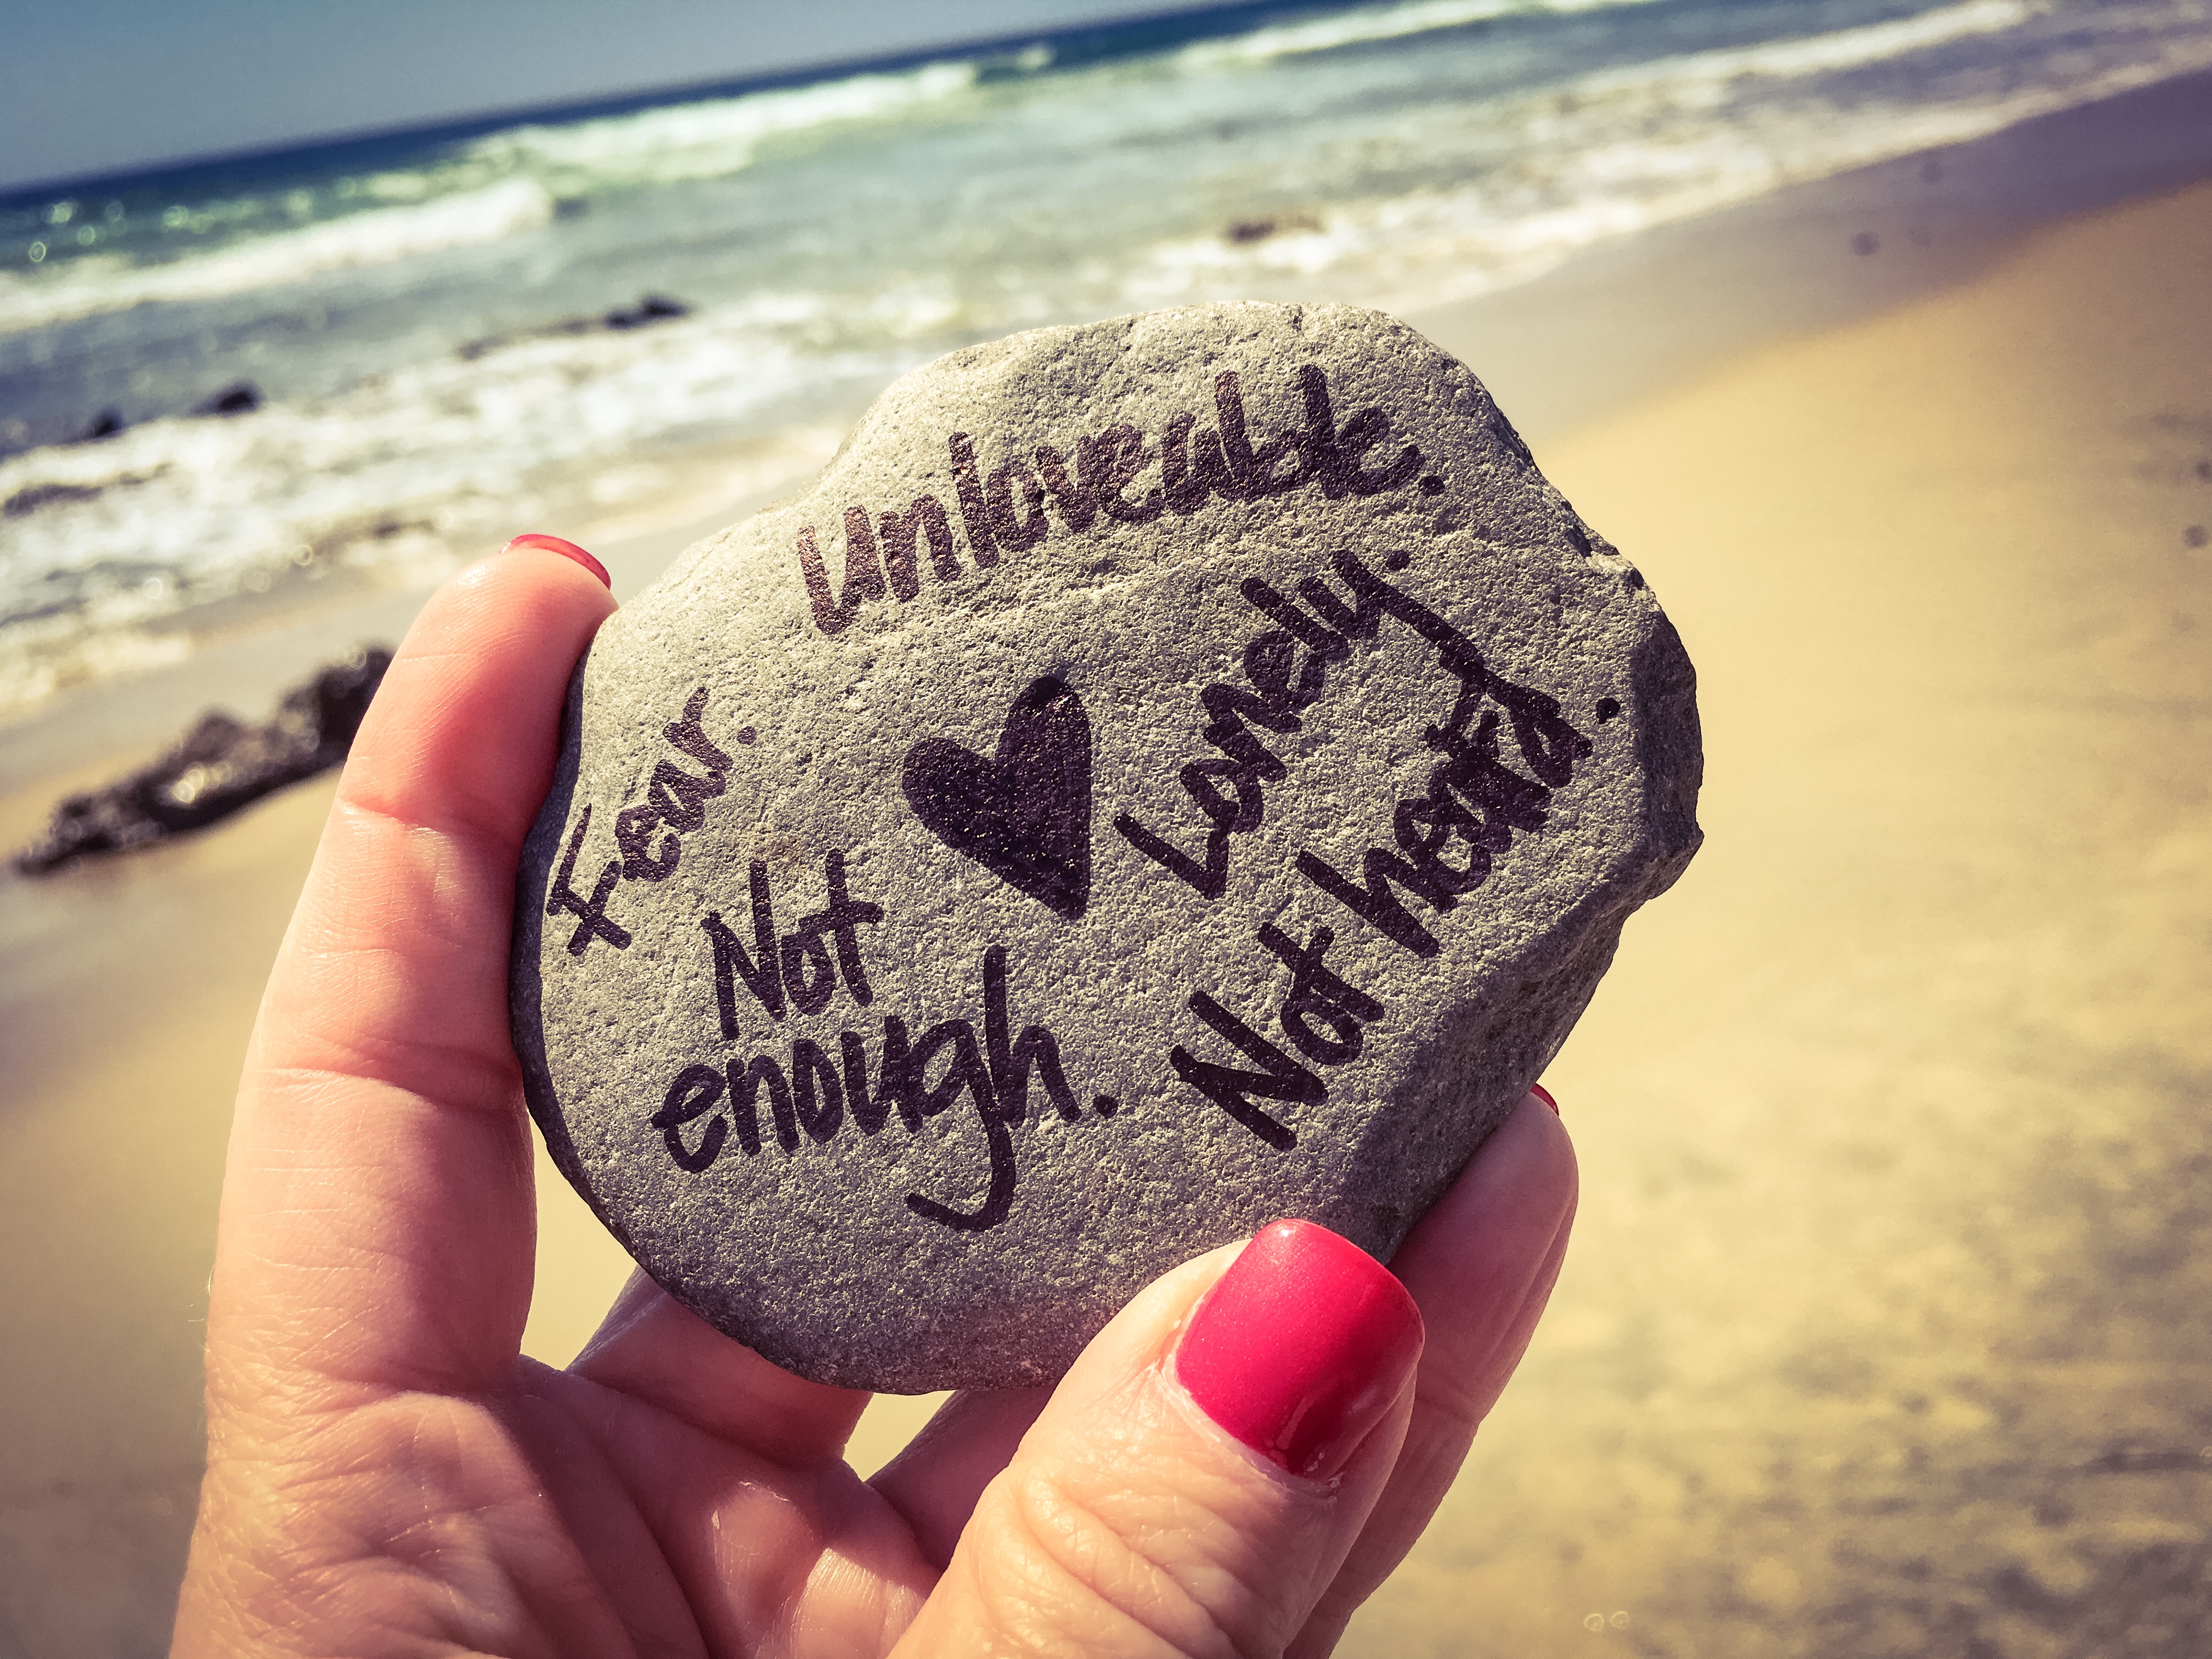 Unloveable.
Fear.
Not
enough.
Lonely.
Not heard.